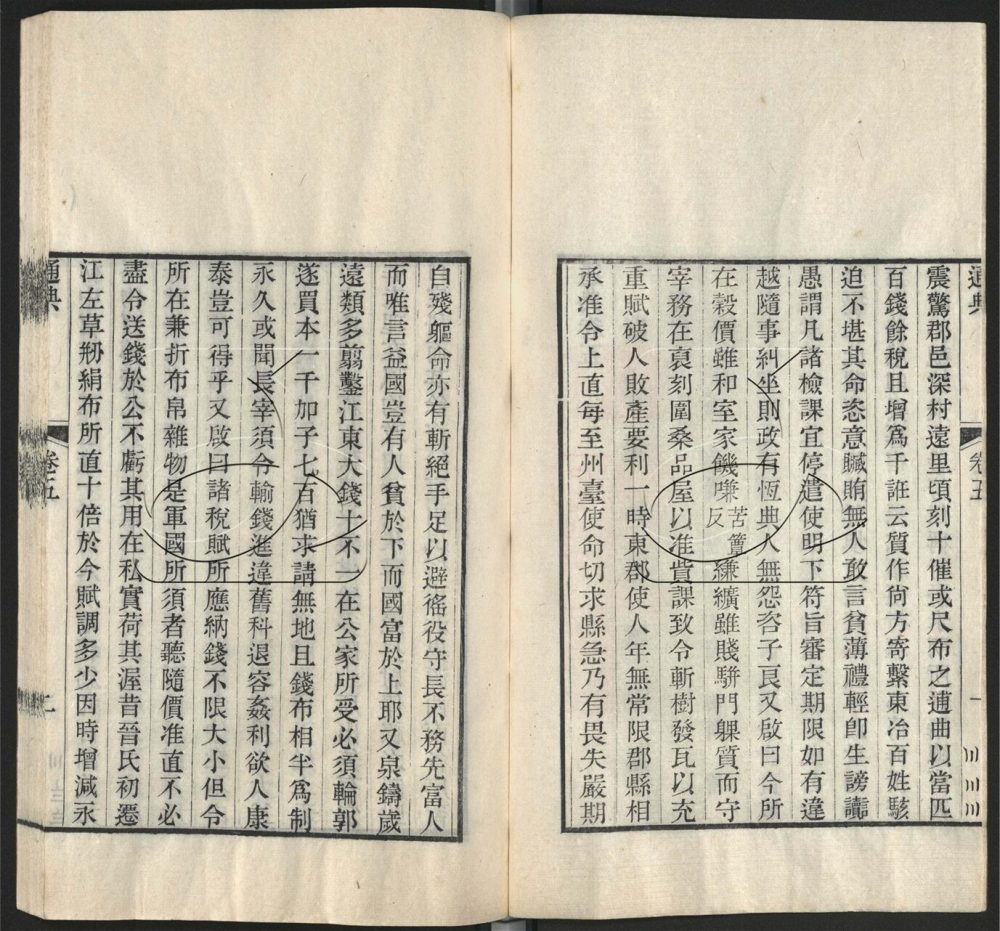 通典
卷五
一
震驚郡邑深村遠里頃刻十催或尺布之逋曲以當匹
百錢餘稅且增爲千誑云質作尙方寄繫東冶百姓駭
迫不堪其命恣意贓賄無人敢言貧薄禮輕卽生謗讟
愚謂凡諸檢課宜停遣使明下符旨審定期限如有違
越隨事糾坐則政有恆典人無怨咨子良又啟曰今所
在穀價雖和室家饑嗛苦簟反縑纊雖賤駢門躶質而守
宰務在裒刻圍桑品屋以准貲課致令斬樹發瓦以充
重賦破人敗產要利一時東郡使人年無常限郡縣相
承准令上直每至州臺使命切求縣急乃有畏失嚴期
自殘軀命亦有斬絕手足以避徭役守長不務先富人
而唯言益國豈有人貧於下而國富於上耶又泉鑄歲
遠類多翦鑿江東大錢十不一在公家所受必須輪郭
遂買本一千加子七百猶求請無地且錢布相半爲制
永久或聞長宰須令輸錢進違舊科退容姦利欲人康
泰豈可得乎又啟曰諸稅賦所應納錢不限大小但令
所在兼折布帛雜物是軍國所須者聽隨價准直不必
盡令送錢於公不虧其用在私實荷其渥昔晉氏初遷
江左草剙絹布所直十倍於今賦調多少因時增減永
通典
卷五